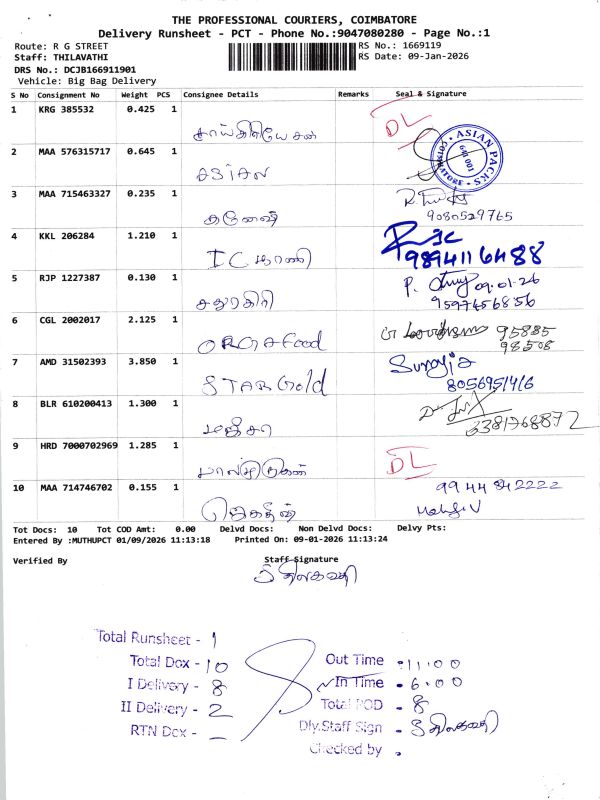 THE PROFESSIONAL COURIERS, COIMBATORE
Delivery Runsheet - PCT - Phone No.:9047080280 - Page No.:1
Route: R G STREET
RS No.: 1669119
Staff: THILAVATHI
RS Date: 09-Jan-2026
DRS No.: DCJB166911901
Vehicle: Big Bag Delivery
S No Consignment No Weight PCS Consignee Details Remarks Seal & Signature
1 KRG 385532 0.425 1 DL
2 MAA 576315717 0.645 1 ASIAN
ASIAN PACKS COIMBATORE 641 001
3 MAA 715463327 0.235 1 கணேஷ்
9080529765
4 KKL 206284 1.210 1 IC
9894116488
5 RJP 1227387 0.130 1 சதுரகிரி P. 09.01.26
9597456856
6 CGL 2002017 2.125 1 ORGA food 95885
98508
7 AMD 31502393 3.850 1 STAR Gold
8056951416
8 BLR 610200413 1.300 1 மஞ்சா
9 HRD 7000702969 1.285 1 பாலமுருகன் DL
10 MAA 714746702 0.155 1 ஜெகதீஸ் 9944842222
Tot Docs: 10 Tot COD Amt: 0.00 Delvd Docs: Non Delvd Docs: Delvy Pts:
Entered By :MUTHUPCT 01/09/2026 11:13:18 Printed On: 09-01-2026 11:13:24
Verified By Staff Signature
திலகவதி
Total Runsheet - 1
Total Dox - 10
I Delivery - 8
II Delivery - 2
RTN Dox - —
Out Time : 11:00
In Time - 6.00
Total POD - 8
Dly.Staff Sign - திலகவதி
Checked by